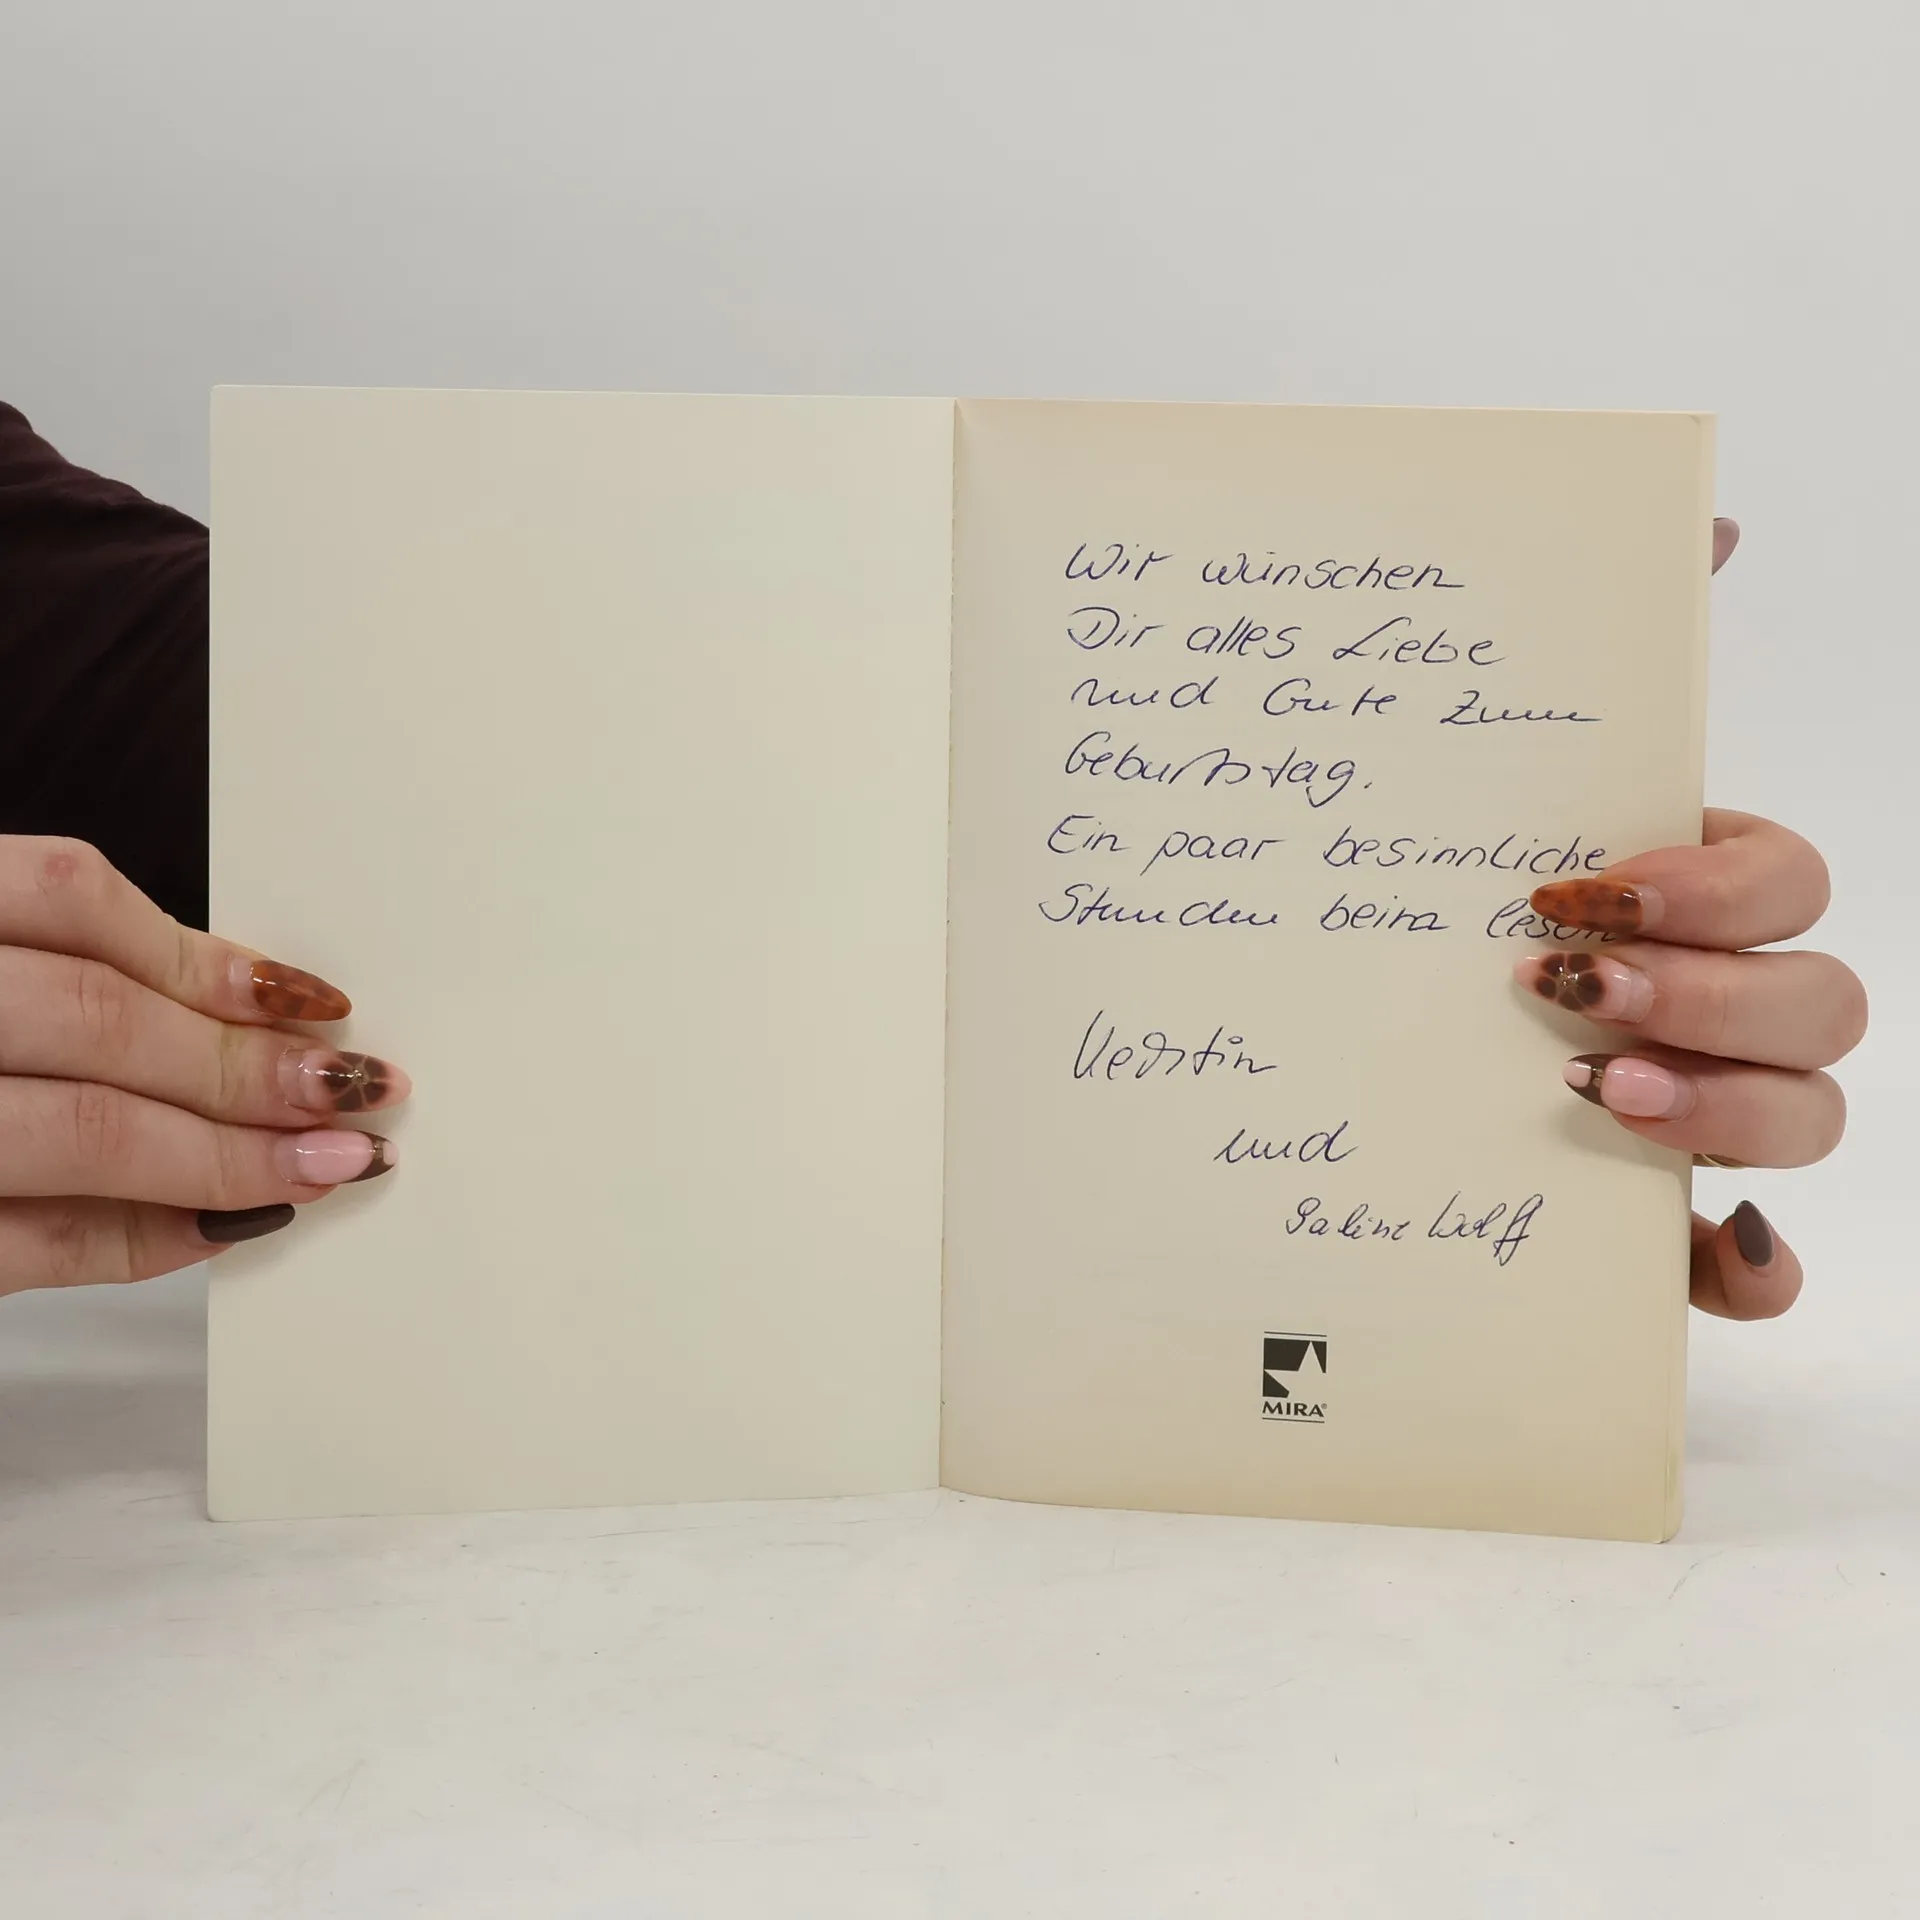 Wir wünschen
Dir alles Liebe
und Gute zum
Geburtstag.
Ein paar besinnliche
Stunden beim lesen
Kerstin
und
Sabine Wolff
MIRA®